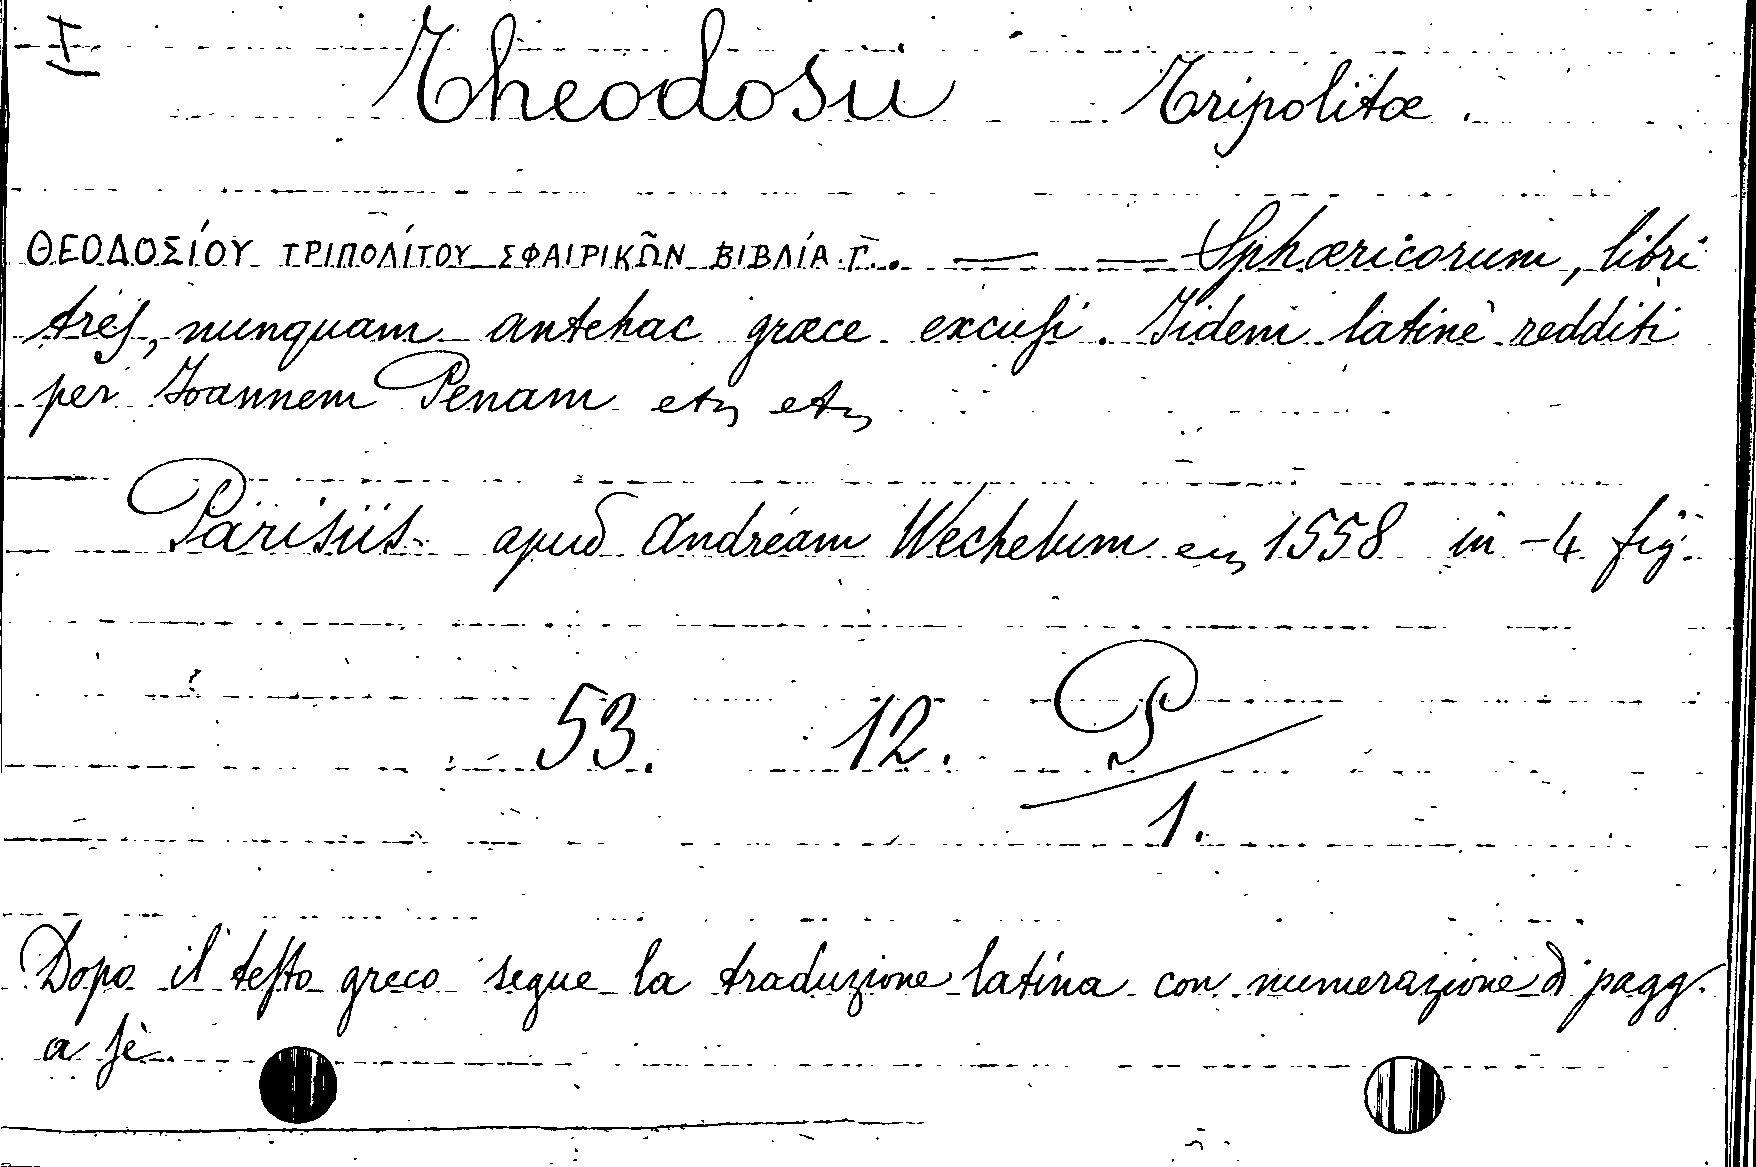 I
Theodosii Tripolitæ.
ΘΕΟΔΟΣΊΟΥ ΤΡΙΠΟΛΊΤΟΥ ΣΦΑΙΡΙΚῶΝ ΒΙΒΛΊΑ Γ̅.. — — Sphæricorum, libri
tres, nunquam antehac græce excusi. Iidem latinè redditi
per Ioannem Penam etc etc
Parisiis apud Andréam Wechelum en 1558 in-4 fig.
53. 12. P
1.
Dopo il testo greco segue la traduzione latina con numerazione di pagg.
a sè.